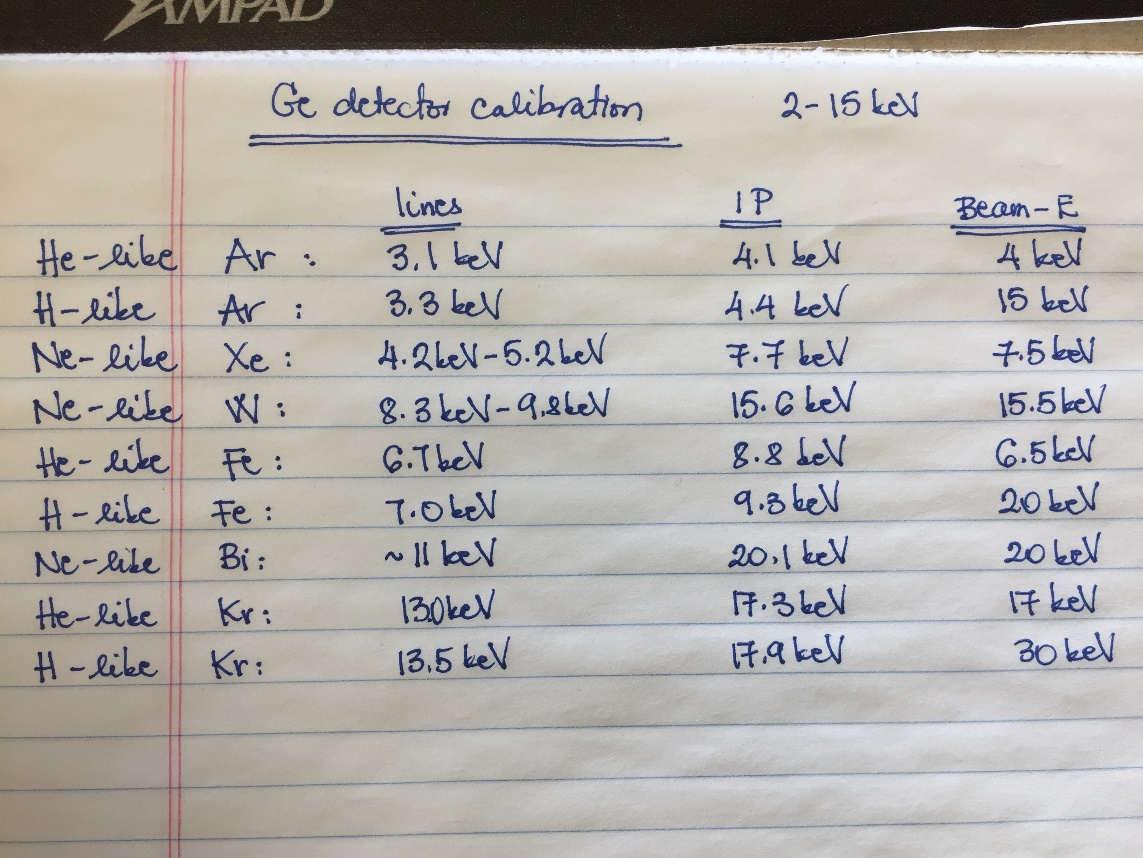 AMPAD
Ge detector calibration 2-15 keV
lines IP Beam-E
He-like Ar : 3.1 keV 4.1 keV 4 keV
H-like Ar : 3.3 keV 4.4 keV 15 keV
Ne-like Xe : 4.2keV-5.2keV 7.7 keV 7.5 keV
Ne-like W : 8.3 keV-9.8keV 15.6 keV 15.5 keV
He-like Fe : 6.7 keV 8.8 keV 6.5 keV
H-like Fe : 7.0 keV 9.3 keV 20 keV
Ne-like Bi : ~ 11 keV 20.1 keV 20 keV
He-like Kr : 13.0 keV 17.3 keV 17 keV
H-like Kr : 13.5 keV 17.9 keV 30 keV